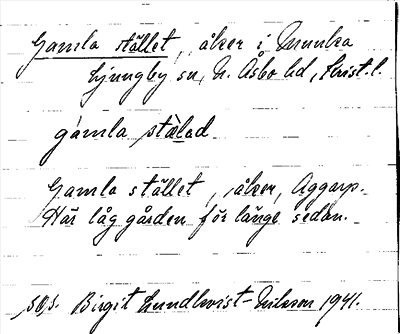 Gamla stället, åker i Munka
Ljungby sn, N. Åsbo hd, Krist. l.
gamla stàlad
Gamla stället, åker, Aggarp.
Här låg gården för länge sedan.
Birgit Lundkvist-Nilsson 1941.